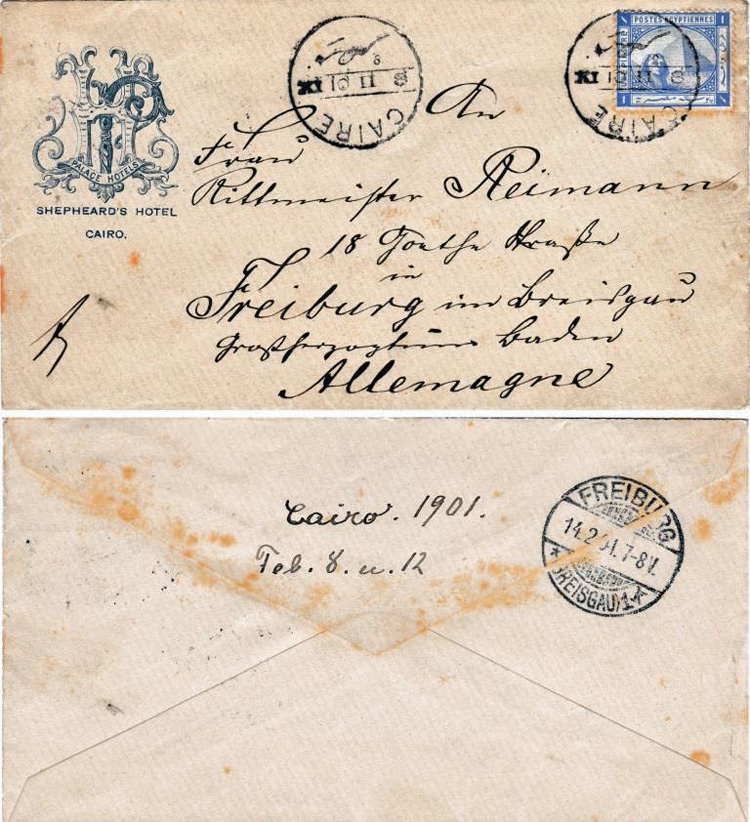 PALACE HOTELS
SHEPHEARD'S HOTEL
CAIRO.
CAIRE
8 II 01
POSTES EGYPTIENNES
CAIRE
8 II 01
An
Frau
Rittmeister Reimann
18 Goethe Straße
in
Freiburg im Breisgau
Großherzogtum Baden
Allemagne
Cairo. 1901.
Feb. 8. u. 12
FREIBURG
14.2.01.7-8V.
* (BREISGAU) 1 *